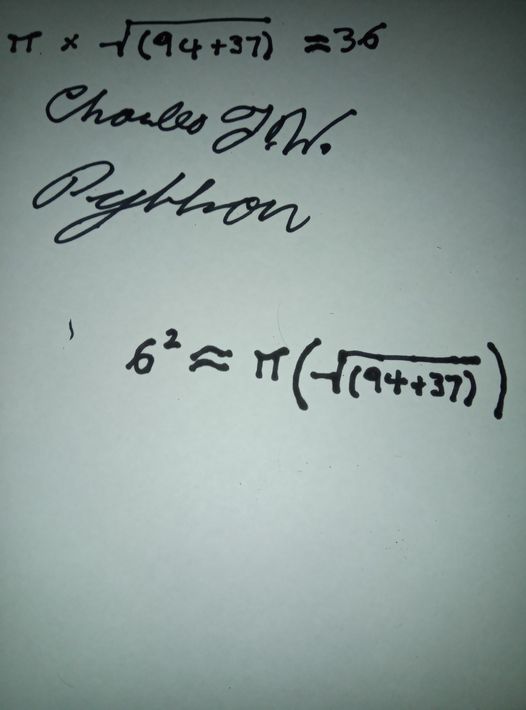 π × √(94+37) ≈36
Charles J.W.
Pybhon
6² ≈ π(√(94+37))